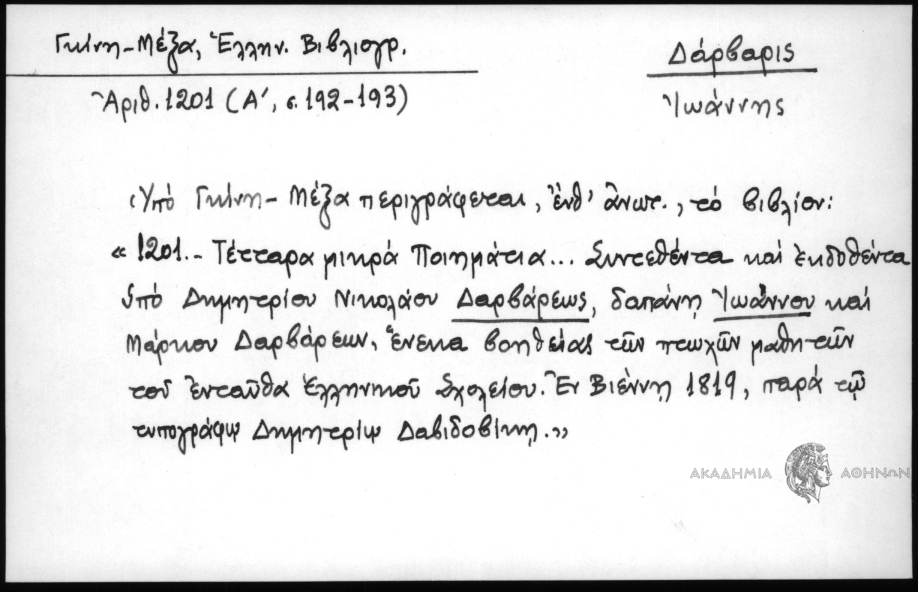 Γκίνη-Μέξα, Ἑλλην. Βιβλιογρ.
Ἀριθ. 1201 (Α΄, σ. 192-193)
Δάρβαρις
Ἰωάννης
Ὑπό Γκίνη-Μέξα περιγράφεται, ἔνθ' ἀνωτ., τό βιβλίον:
« 1201.- Τέτταρα μικρά Ποιημάτια... Συντεθέντα καί ἐκδοθέντα
ὑπό Δημητρίου Νικολάου Δαρβάρεως, δαπάνῃ Ἰωάννου καί
Μάρκου Δαρβάρεων, ἕνεκα βοηθείας τῶν πτωχῶν μαθητῶν
τοῦ ἐνταῦθα Ἑλληνικοῦ Σχολείου. Ἐν Βιέννῃ 1819, παρά τῷ
τυπογράφῳ Δημητρίῳ Δαβιδοβίκῃ.»
ΑΚΑΔΗΜΙΑ ΑΘΗΝΩΝ